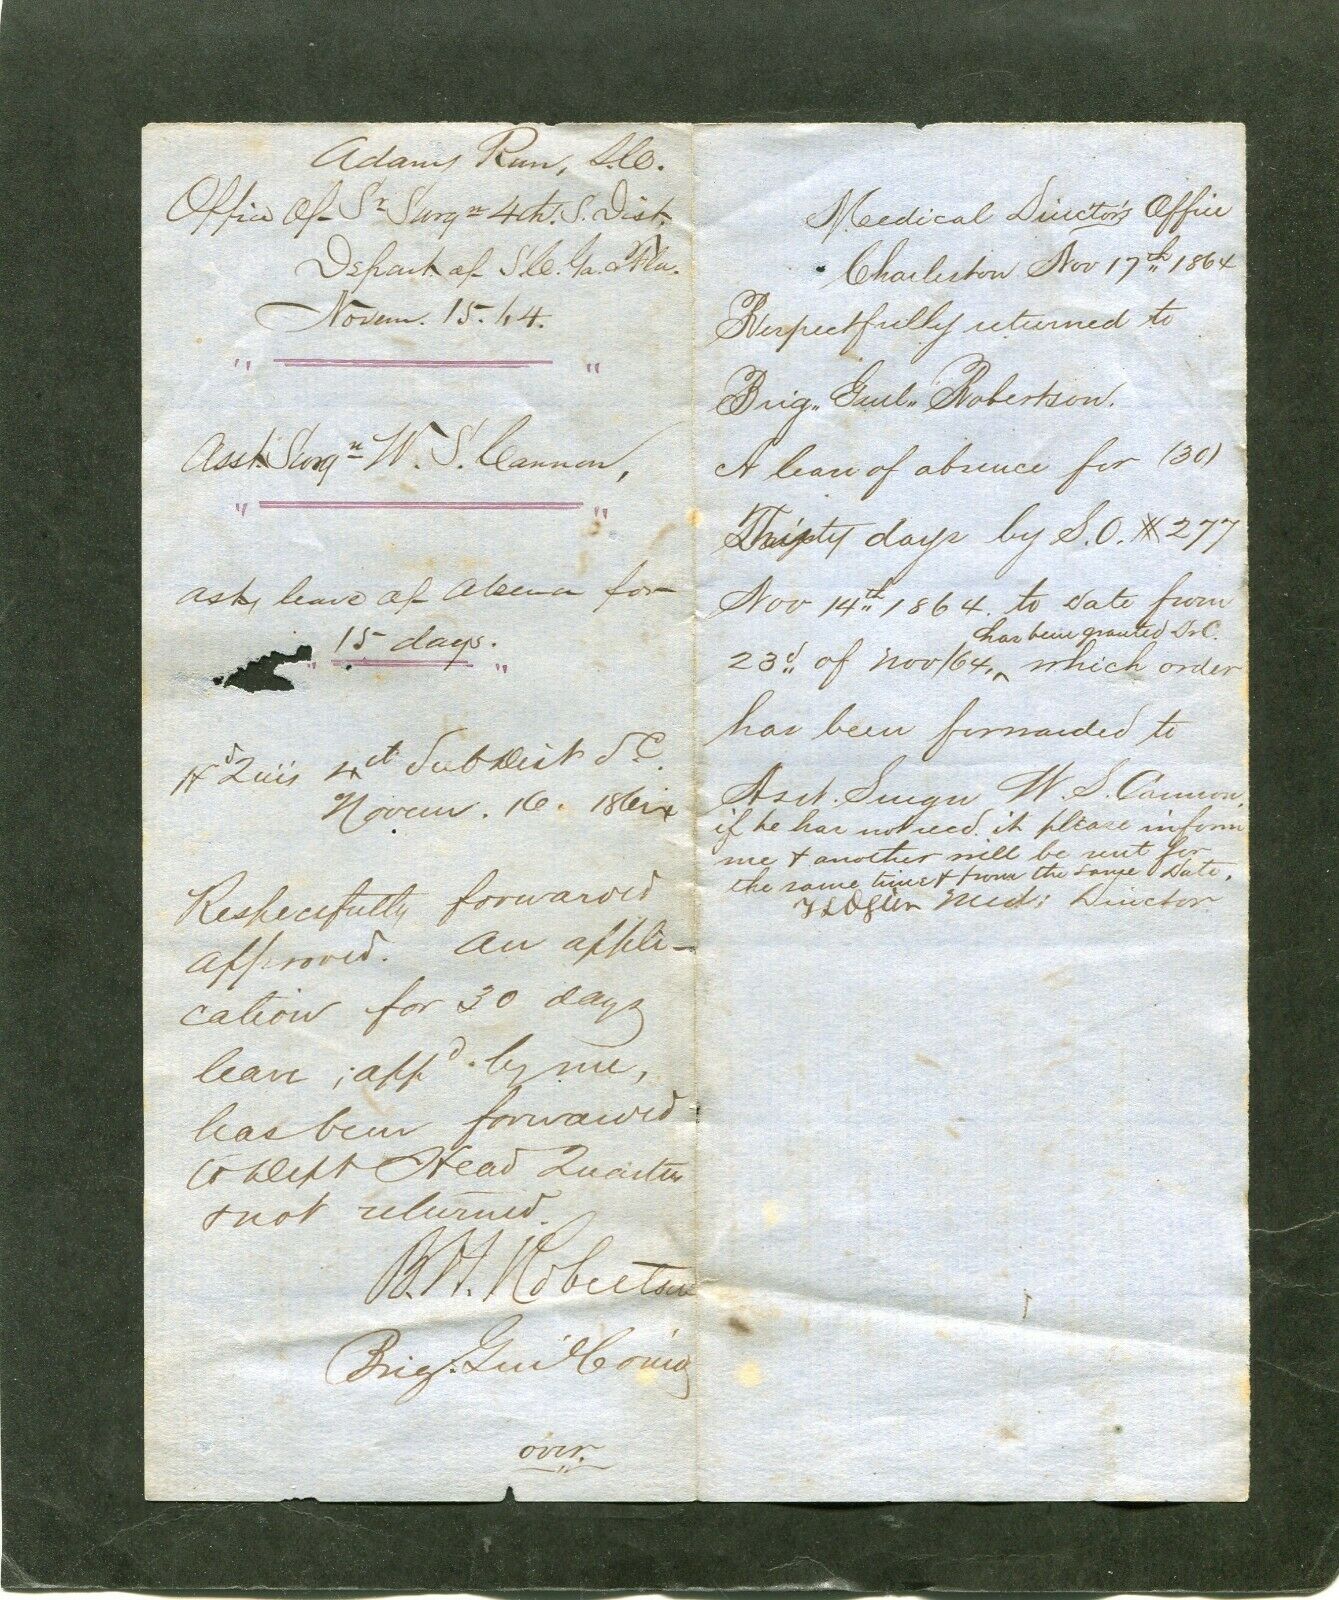 Adams Run, S.C.
Office of Sr Surgn 4th. S. Dist.
Depart. of S.C. Ga. & Fla.
Novem. 15. 64.
" "
Asst. Surgn W. S. Cannon,
" "
asks leave of absence for
" 15 days. "
Hd Qrs 4th Sub Dist S.C.
Novem. 16. 1864
Respectfully forwarded
approved. An appli-
cation for 30 days
leave, appd. by me,
has been forwarded
to Dept Head Quarters
& not returned.
B. H. Robertson
Brig. Genl Comdg
over.
Medical Director's Office
Charleston Nov 17th 1864
Respectfully returned to
Brig. Genl. Robertson.
A leave of absence for (30)
Thirty days by S.O. # 277
Nov 14th 1864. to date from
has been granted Dr C.
23d of Nov/64, ^ which order
has been forwarded to
Asst. Surgn W. S. Cannon,
if he has not recd. it please inform
me & another will be sent for
the same time & from the same date.
Med: Director